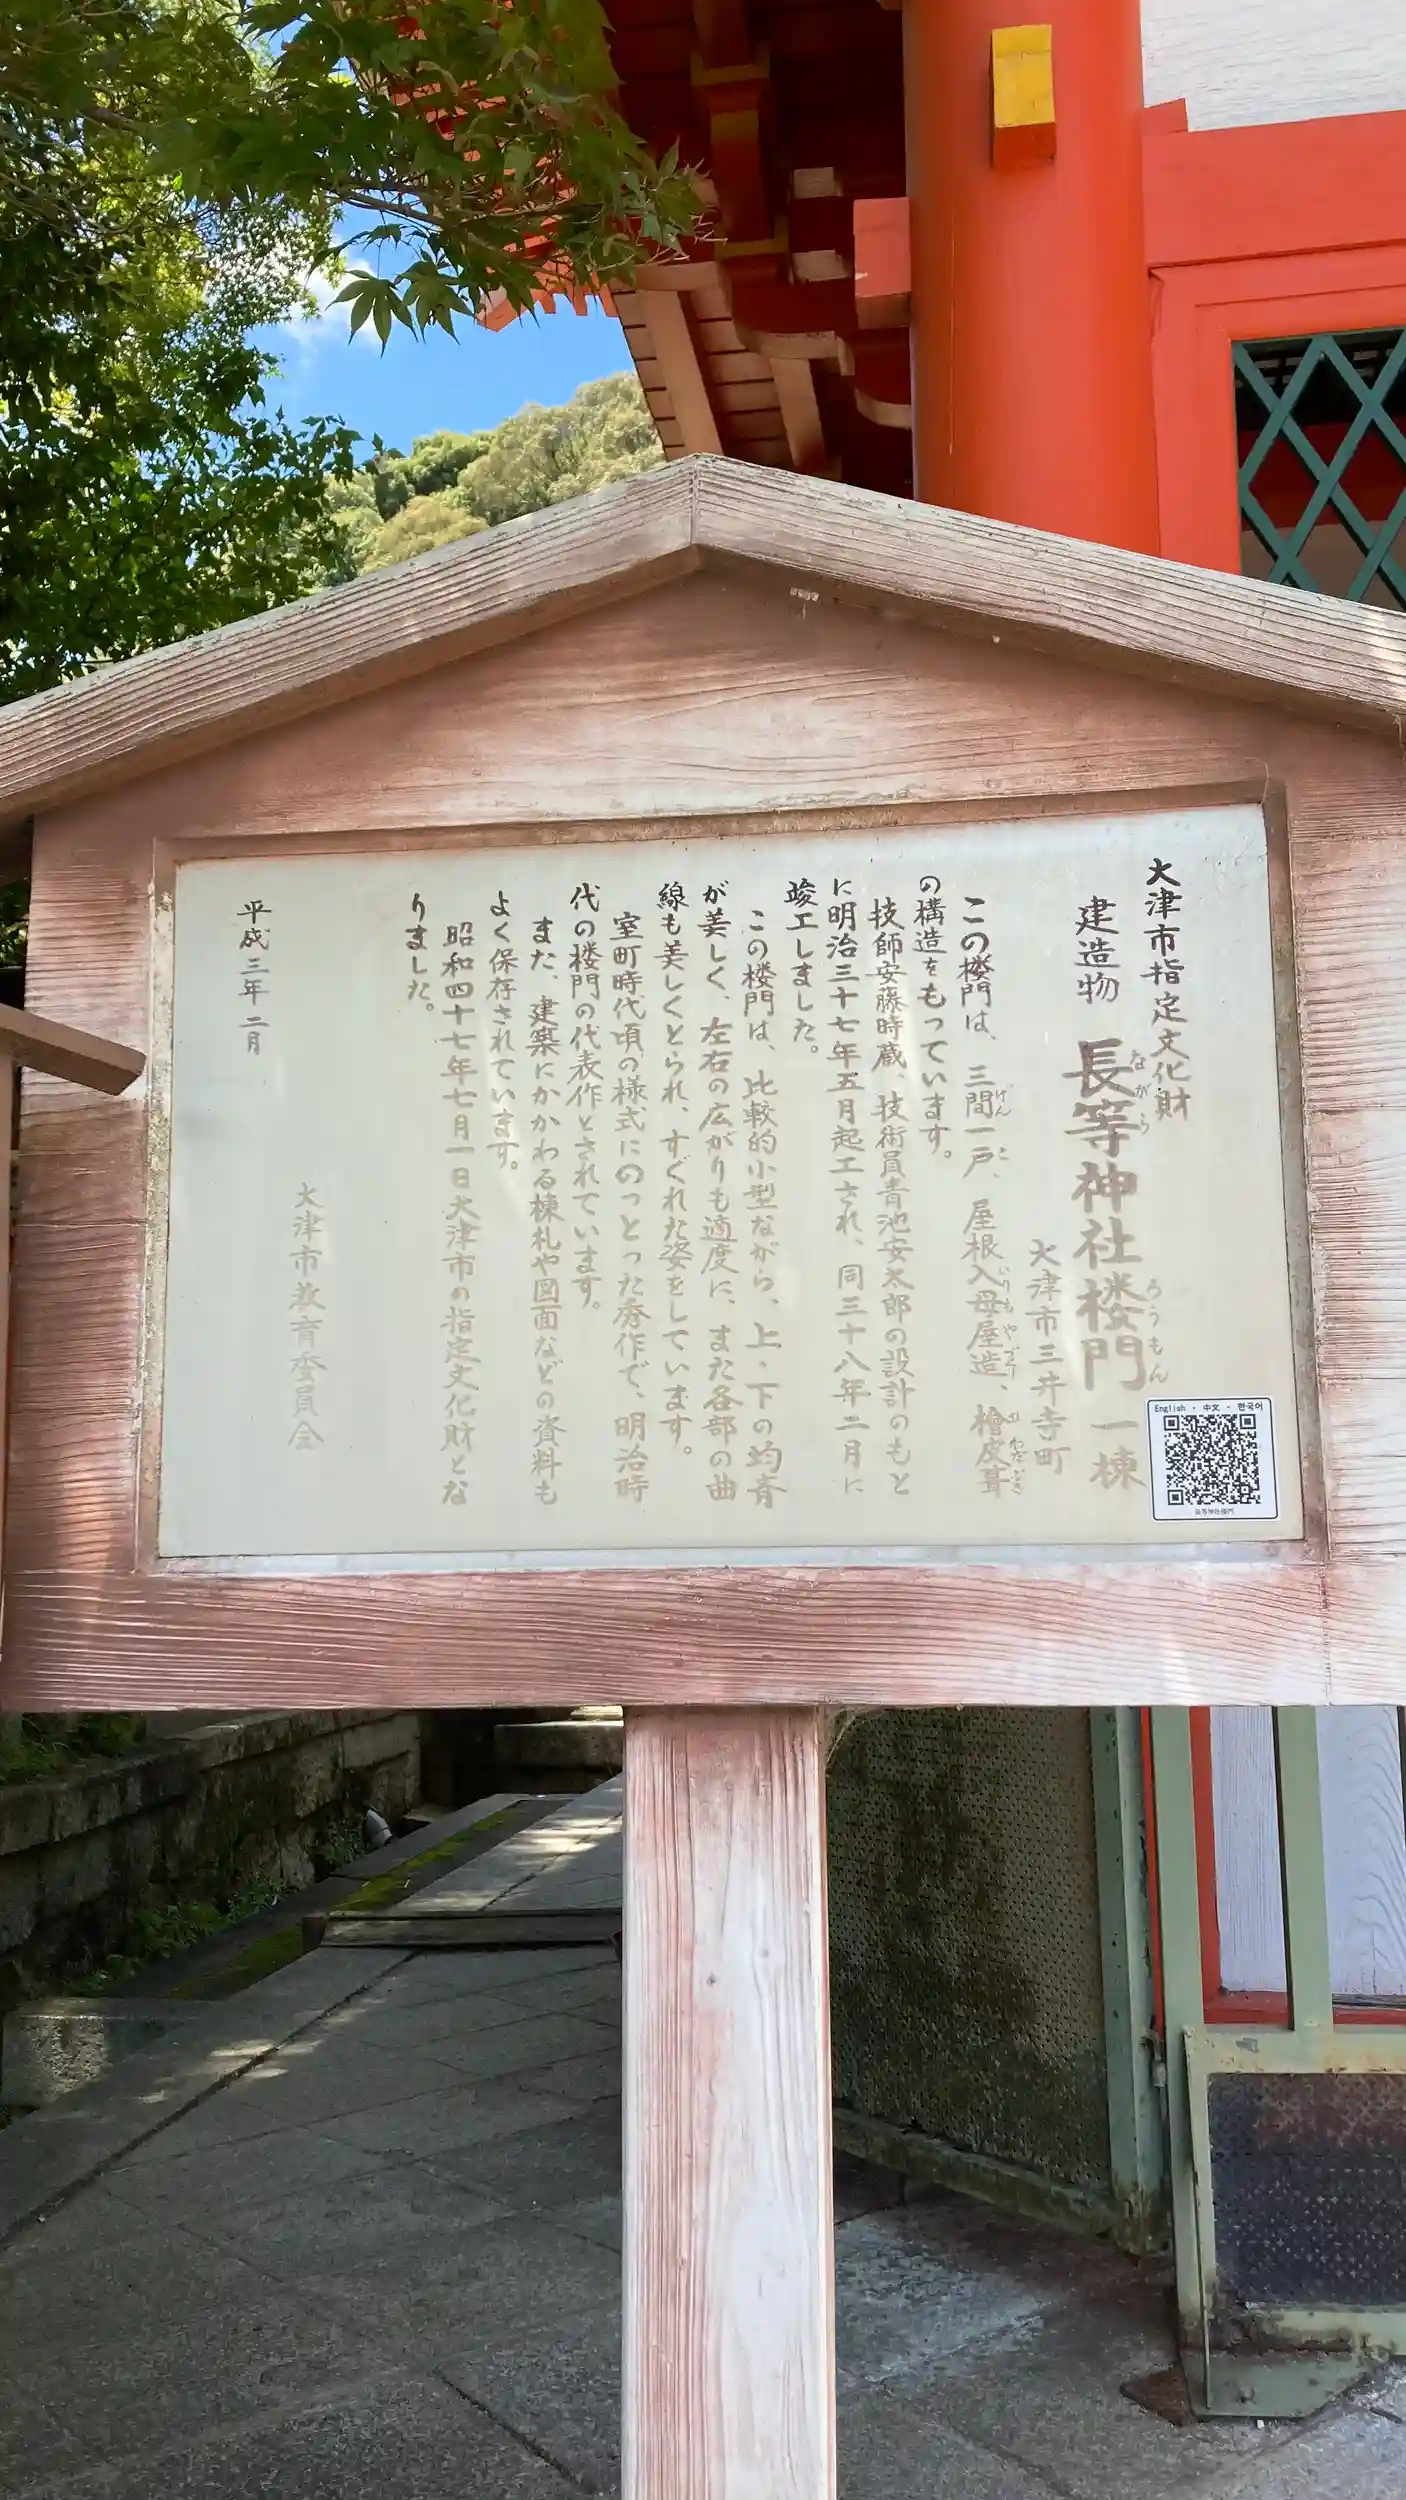 大津市指定文化財
建造物 長等神社楼門 一棟
ながら ろうもん
大津市三井寺町
この楼門は、三間一戸、屋根入母屋造、檜皮葺
けん こ いりもやづくり ひわだぶき
の構造をもっています。
技師安藤時蔵、技術員青池安太郎の設計のもと
に明治三十七年五月起工され、同三十八年二月に
竣工しました。
この楼門は、比較的小型ながら、上・下の均斉
が美しく、左右の広がりも適度に、また各部の曲
線も美しくとられ、すぐれた姿をしています。
室町時代頃の様式にのっとった秀作で、明治時
代の楼門の代表作とされています。
また、建築にかかわる棟札や図面などの資料も
よく保存されています。
昭和四十七年七月一日大津市の指定文化財とな
りました。
大津市教育委員会
平成三年二月
English・中文・한국어
長等神社楼門